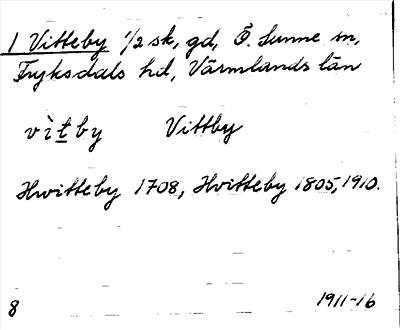 1 Vitteby 1/2 sk, gd, Ö. Sunne sn,
Fryksdals hd, Värmlands län
vìtby Vittby
Hwitteby 1708, Hvitteby 1805, 1910.
8 1911-16